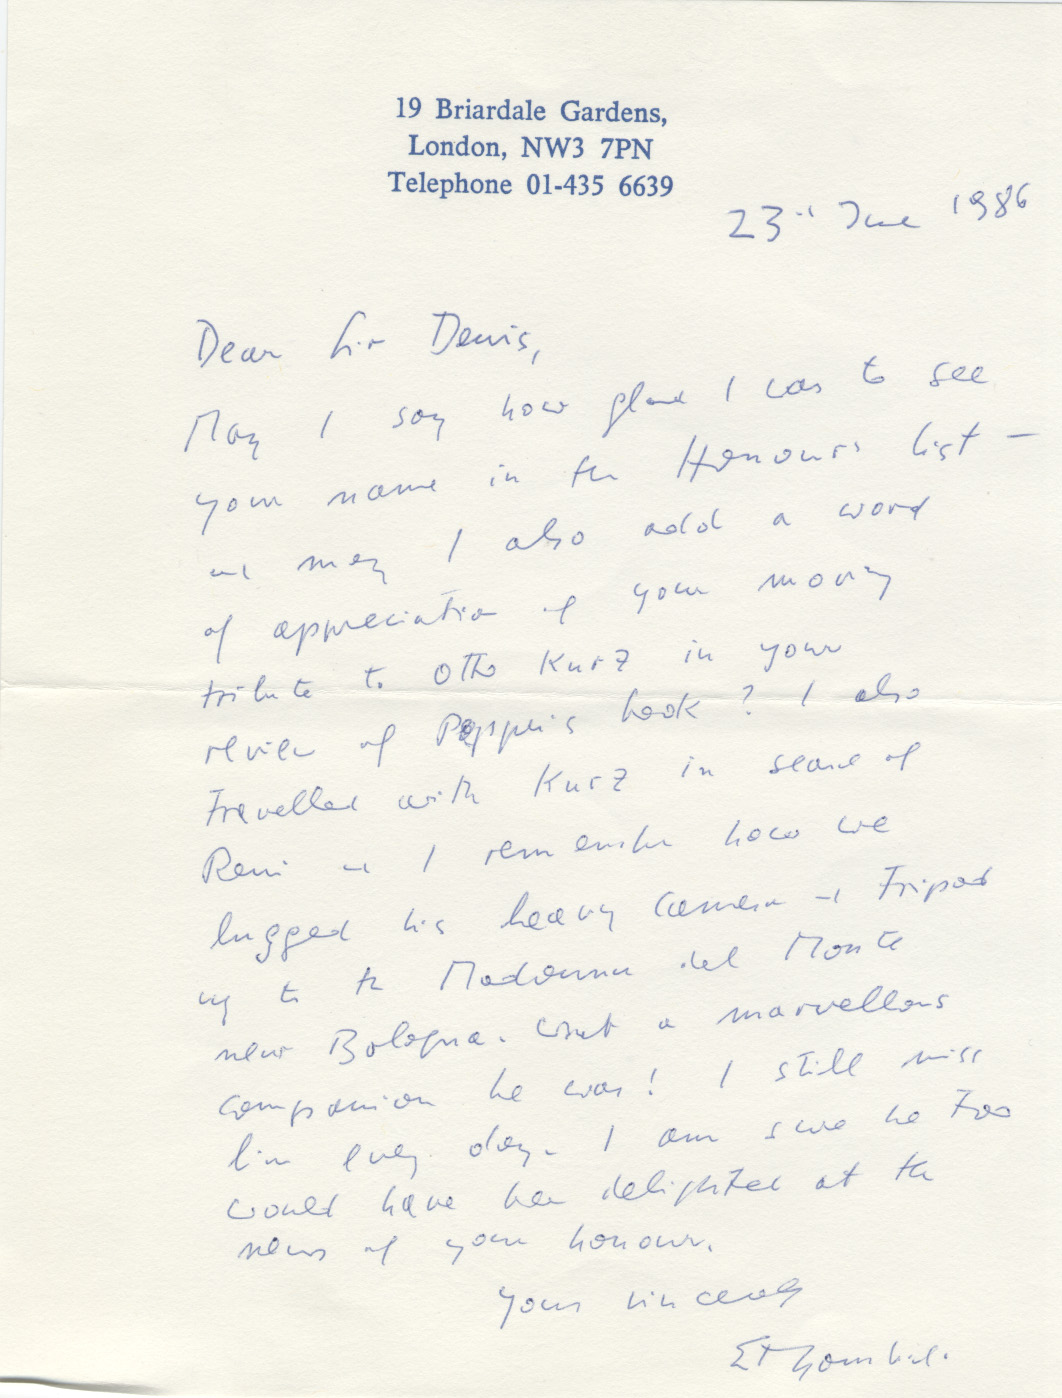 19 Briardale Gardens,
London, NW3 7PN
Telephone 01-435 6639
23rd June 1986
Dear Sir Denis,
May I say how glad I was to see
your name in the Honours list –
and may I also add a word
of appreciation of your moving
tribute to Otto Kurz in your
review of Pepper's book? I also
travelled with Kurz in search of
Reni and I remember how we
lugged his heavy camera and tripod
up to the Madonna del Monte
near Bologna. What a marvellous
companion he was! I still miss
him every day. I am sure he too
would have been delighted at the
news of your honour.
Yours sincerely
E H Gombrich.